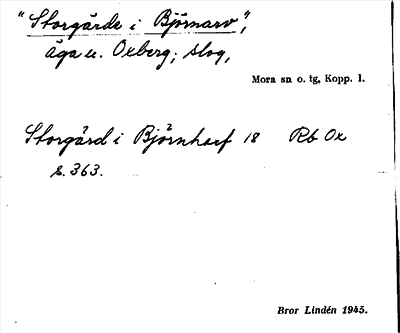 "Storgårde i Björnarv",
äga u. Oxberg; slog,
Mora sn o. tg, Kopp. l.
Storgård i Björnharf 18 Rb Ox
s. 363.
Bror Lindén 1945.